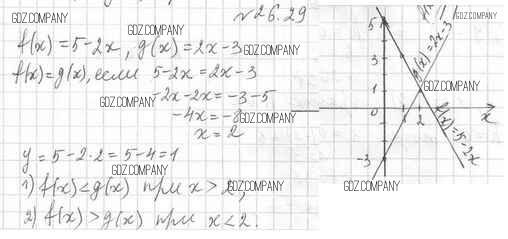 №26.29
f(x) = 5-2x, g(x) = 2x-3
f(x) = g(x), если 5-2x = 2x-3
-2x-2x = -3-5
-4x = -8
x = 2
y = 5-2·2 = 5-4 = 1
1) f(x) < g(x) при x > 2,
2) f(x) > g(x) при x < 2.
5
g(x) = 2x-3
1
0
1
2
x
f(x) = 5-2x
-3
GDZ.COMPANY
GDZ.COMPANY
GDZ.COMPANY
GDZ.COMPANY
GDZ.COMPANY
GDZ.COMPANY
GDZ.COMPANY
GDZ.COMPANY
GDZ.COMPANY
GDZ.COMPANY
GDZ.COMPANY
GDZ.COMPANY